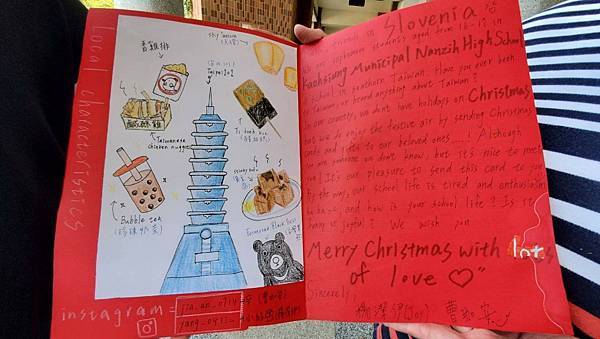 Local characteristics
sky lantern
(天燈)
香雞排
Taipei 101
鹹酥雞
Taiwanese
chicken nugget
stinky tofu
Bubble tea
(珍珠奶茶)
Formosan Black Bear
instagram =
friends in Slovenia
students aged from 16-17 in
Kaohsiung Municipal Nanzih High School
school in southern Taiwan. Have you ever been
to Taiwan, or heard anything about Taiwan?
In our country, we don't have holidays on Christmas
but we do enjoy the festive air by sending Christmas
cards and gifts to our beloved ones. Although
you are someone we don't know, but it's nice to meet
you! It's our pleasure to send this card to you.
By the way, our school life is tired and enthusiastic
and how is your school life? Is it
happy or joyful? We wish you
Merry Christmas with lots
of love ♡"
Sincerely,